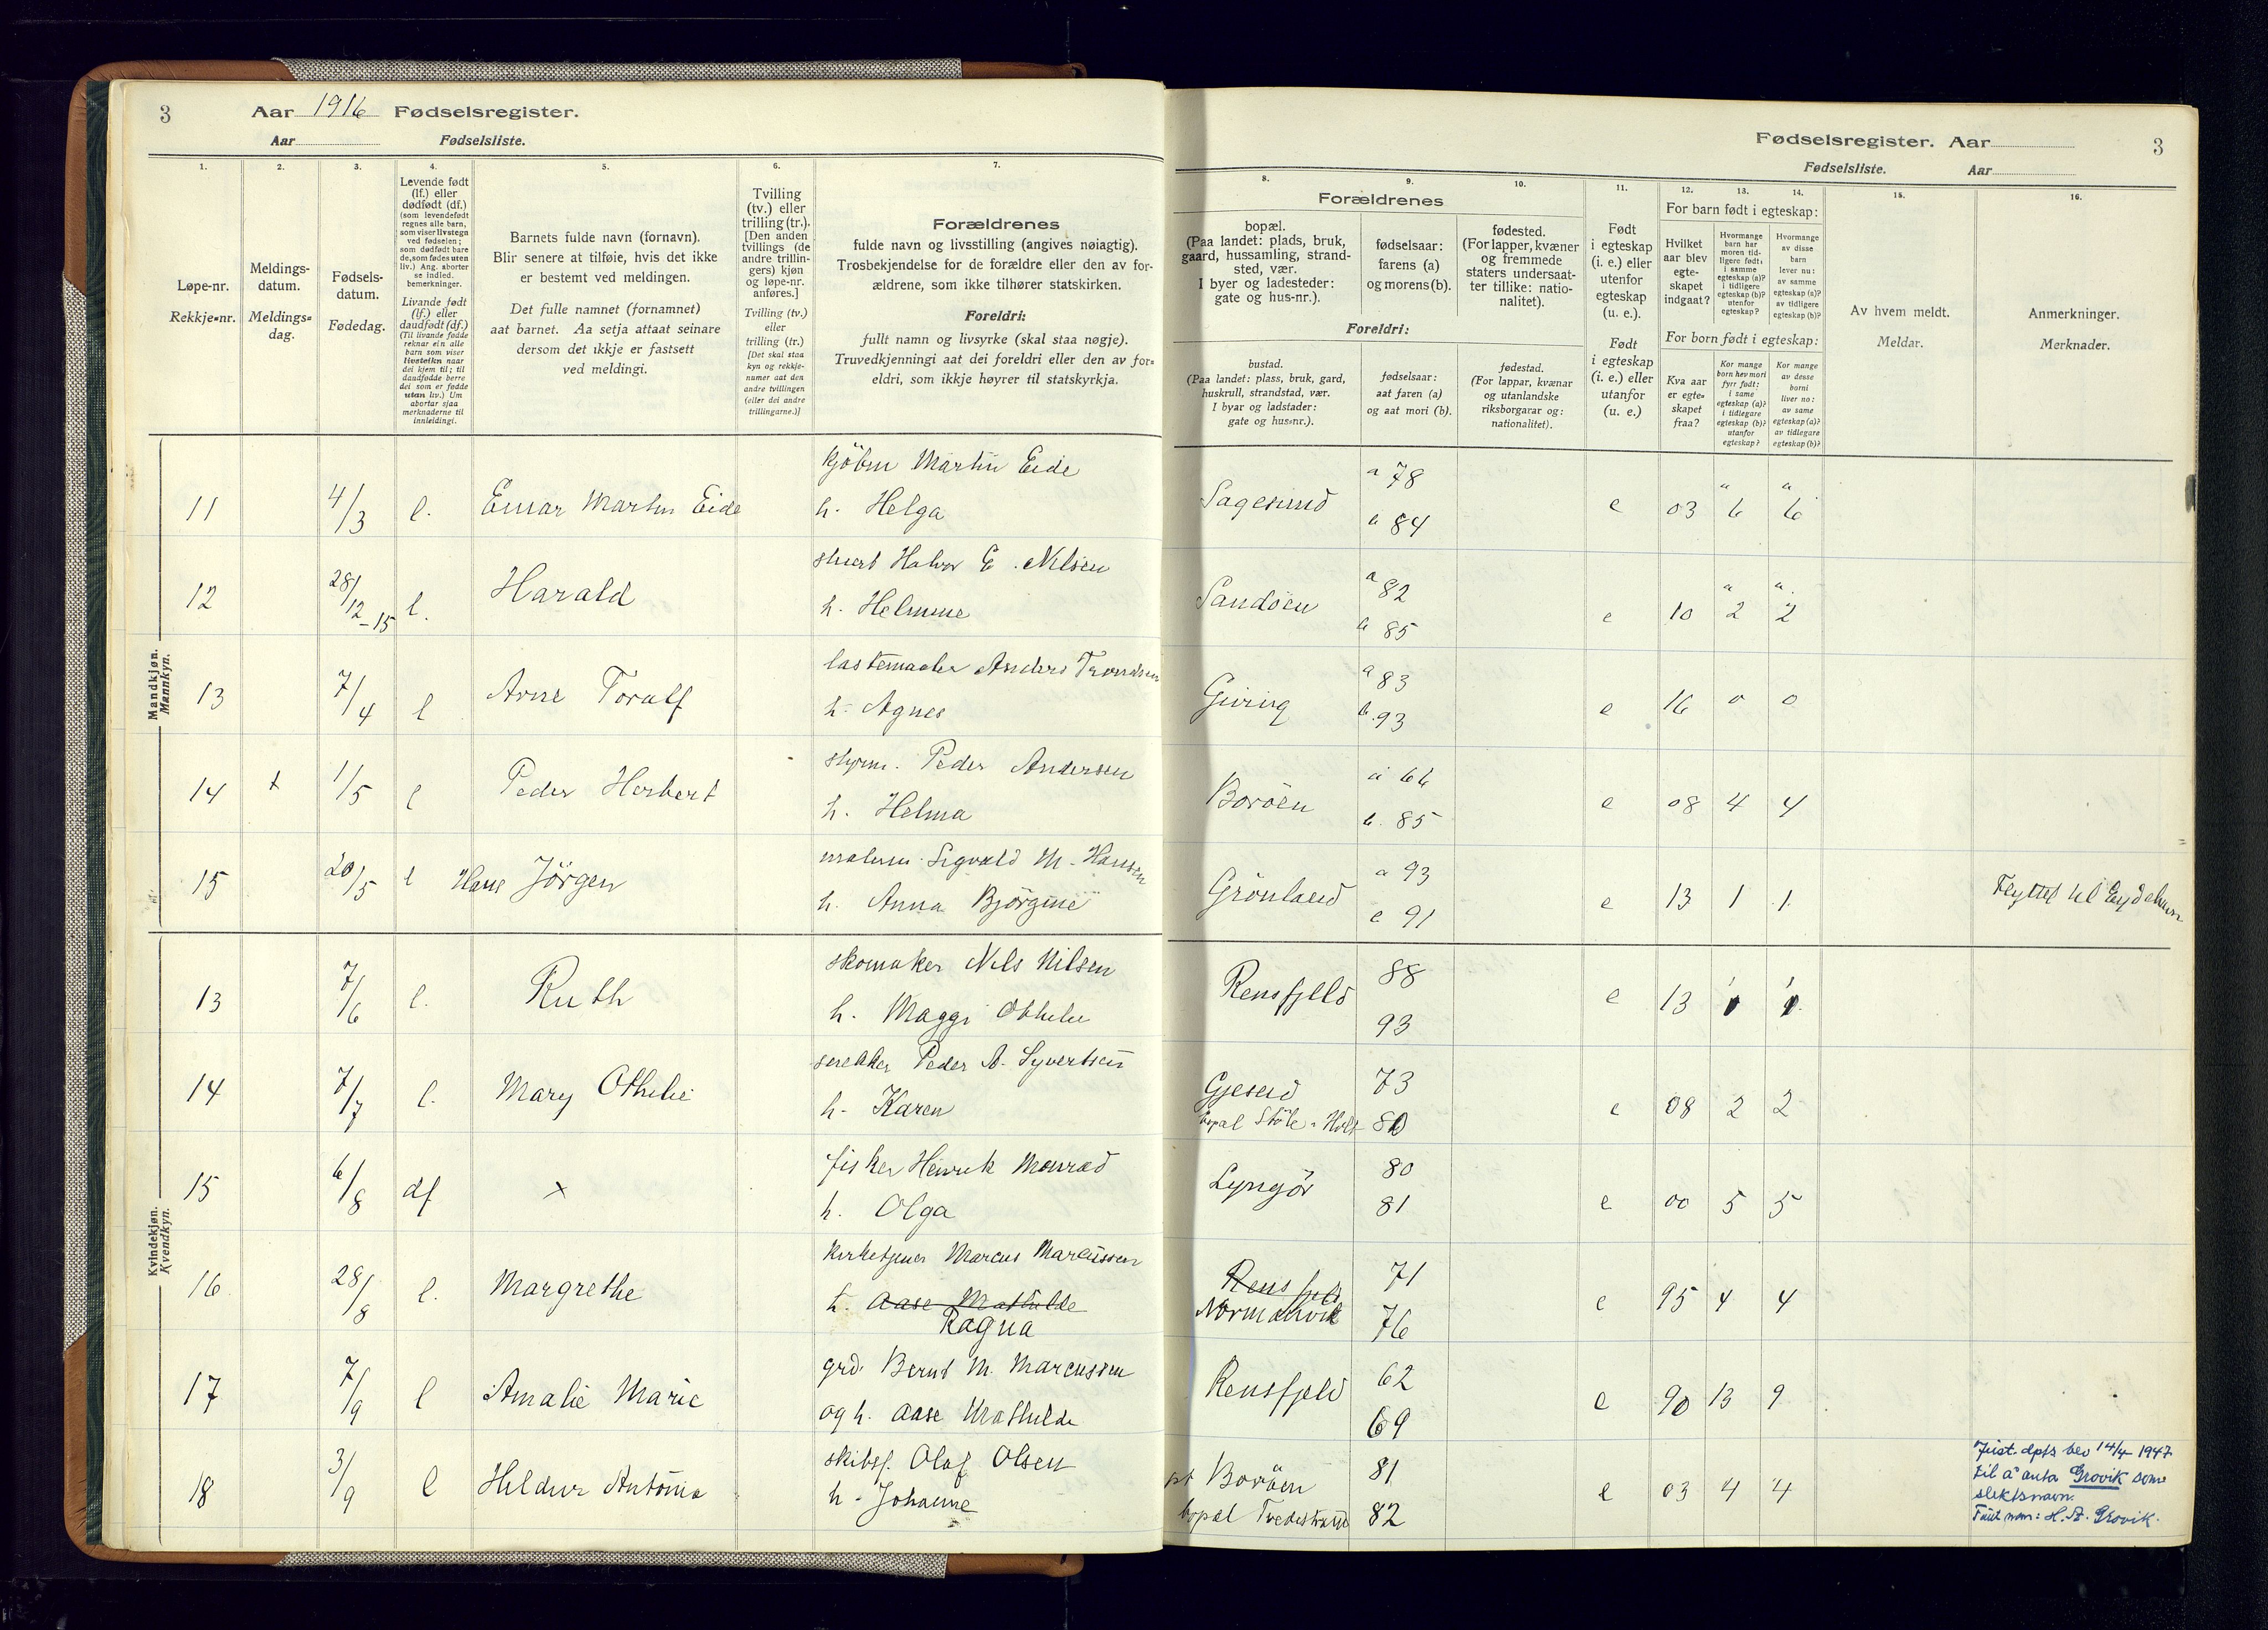 3 Aar 1916 Fødselsregister.
Aar Fødselsliste.
1. 2. 3. 4. 5. 6. 7.
Løpe-nr.
Rekkje-nr.
Meldings-
datum.
Meldings-
dag.
Fødsels-
datum.
Fødedag.
Levende født
(lf.) eller
dødfødt (df.)
(som levendefødt
regnes alle barn,
som viser livstegn
ved fødselen;
som dødfødt bare
de, som fødes uten
liv.) Ang. aborter
se indled.
bemerkninger.
Livande født
(lf.) eller
daudfødt (df.)
(Til livande fødde
reknar ein alle
barn som viser
livsteikn naar
dei kjem til; til
daudfødde berre
dei som er fødde
utan liv.) Um
abortar sjaa
merknaderne til
innleidingi.
Barnets fulde navn (fornavn).
Blir senere at tilføie, hvis det ikke
er bestemt ved meldingen.
Det fulle namnet (fornamnet)
aat barnet. Aa setja attaat seinare
dersom det ikkje er fastsett
ved meldingi.
Tvilling
(tv.) eller
trilling (tr.).
[Den anden
tvillings (de
andre trillin-
gers) kjøn
og løpe-nr.
anføres.]
Tvilling (tv.)
eller
trilling (tr.)
[Det skal staa
kyn og rekkje-
numer aat den
andre tvillingen
(eller dei andre
trillingarne.)]
Forældrenes
fulde navn og livsstilling (angives nøiagtig).
Trosbekjendelse for de forældre eller den av for-
ældrene, som ikke tilhører statskirken.
Foreldri:
fullt namn og livsyrke (skal staa nøgje).
Truvedkjenningi aat dei foreldri eller den av for-
eldri, som ikkje høyrer til statskyrkja.
Fødselsregister. Aar 3
Fødselsliste. Aar
8. 9. 10. 11. 12. 13. 14. 15. 16.
Forældrenes
bopæl.
(Paa landet: plads, bruk,
gaard, hussamling, strand-
sted, vær.
I byer og ladesteder:
gate og hus-nr.).
fødselsaar:
farens (a)
og morens (b).
fødested.
(For lapper, kvæner
og fremmede
staters undersaat-
ter tillike: natio-
nalitet).
Foreldri:
bustad.
(Paa landet: plass, bruk, gard,
huskrull, strandstad, vær.
I byar og ladstader:
gate og hus-nr.).
fødselsaar:
aat faren (a)
og aat mori (b).
fødestad.
(For lappar, kvænar
og utanlandske
riksborgarar og:
nationalitet).
Født
i egteskap
(i. e.) eller
utenfor
egteskap
(u. e.).
Født
i egteskap
(i. e.) eller
utanfor
(u. e.)
For barn født i egteskap:
Hvilket
aar blev
egte-
skapet
indgaat?
Hvormange
barn har
moren tid-
ligere født:
i samme
egteskap (a)?
i tidligere
egteskap (b)?
utenfor
egteskap?
Hvormange
av disse
barn
lever nu:
av samme
egteskap (a)?
av tidligere
egteskap (b)?
For born født i egteskap:
Kva aar
er egte-
skapet
fraa?
Kor mange
born hev mori
fyrr født:
i same
egteskap (a)?
i tidlegare
egteskap (b)?
utanfor
egteskap?
Kor mange
av desse
borni
liver no:
av same
egteskap (a)?
av tidlegare
egteskap (b)?
Av hvem meldt.
Meldar.
Anmerkninger.
Merknader.
Mandkjøn.
Mannkyn.
11 4/3 l. Einar Martin Eide kjöbm Martin Eide
h. Helga
Sagesund a 78 b 84 e 03 a 6 a 6
12 28/12-15 l. Harald Halvor E. Nilsen
h. Helmine
Sandöen a 82 b 85 e 10 a 2 a 2
13 7/4 l Arne Toralf lastemaaler Anders Trondsen
h. Agnes
Giving a 83 b. 93 e 16 0 0
14 1/5 l Peder Herbert styrm. Peder Andersen
h. Helma
Boröen a 66 b. 85 e 08 4 4
15 20/5 l Hans Jörgen Sigvald M. Hansen
h. Anna Björgine
Grönland a 93 91 e 13 1 1 Flyttet til Eydehavn
Kvindekjøn.
Kvendkyn.
13 7/6 l. Ruth skomaker Nils Nilsen
h. Maggi Othelie
Rensfjeld 88 93 e 13 1 1
14 7/7 l. Mary Othelie snekker Peder A. Syvertsen
h. Karen
Gjesend
bopæl Stöle i Holt 73 80 e 08 2 2
15 6/8 df x fisker Henrik Monrad
h. Olga
Lyngör 80 81 e 00 5 5
16 28/8 l. Margrethe kirketjener Marcus Marcussen
h. Aase Mathilde
Ragna
Rensfjeld
Normanvik 71 76 e 95 4 4
17 7/9 l Amalie Marie grd. Bernt M. Marcussen
og h. Aase Mathilde
Rensfjeld 62 69 e 90 13 9
18 3/9 l Heldur Antonia skibsf. Olaf Olsen
h. Johanne
pt Boröen
bopæl Tvedestrand 81 82 e 03 4 4
Just. dpts bev 14/4 1947
til å anta Grovik som
slektsnavn.
Fullt navn: H. A. Grovik.